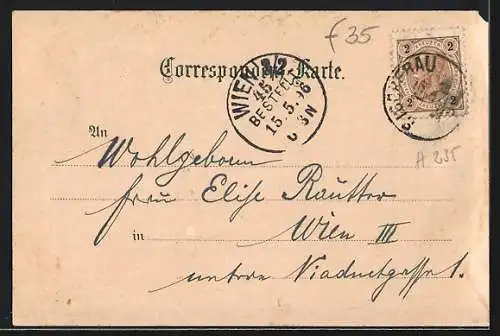 f 35
Correspondenz-Karte.
2 2
2 2
WIEN 3/2
45
BESTELLT
15.5.96
8 3N
SIEGHERAU
A 235
An
Wohlgeboren
Frau Elise Rautter
in Wien III
untere Viaductgasse 1.